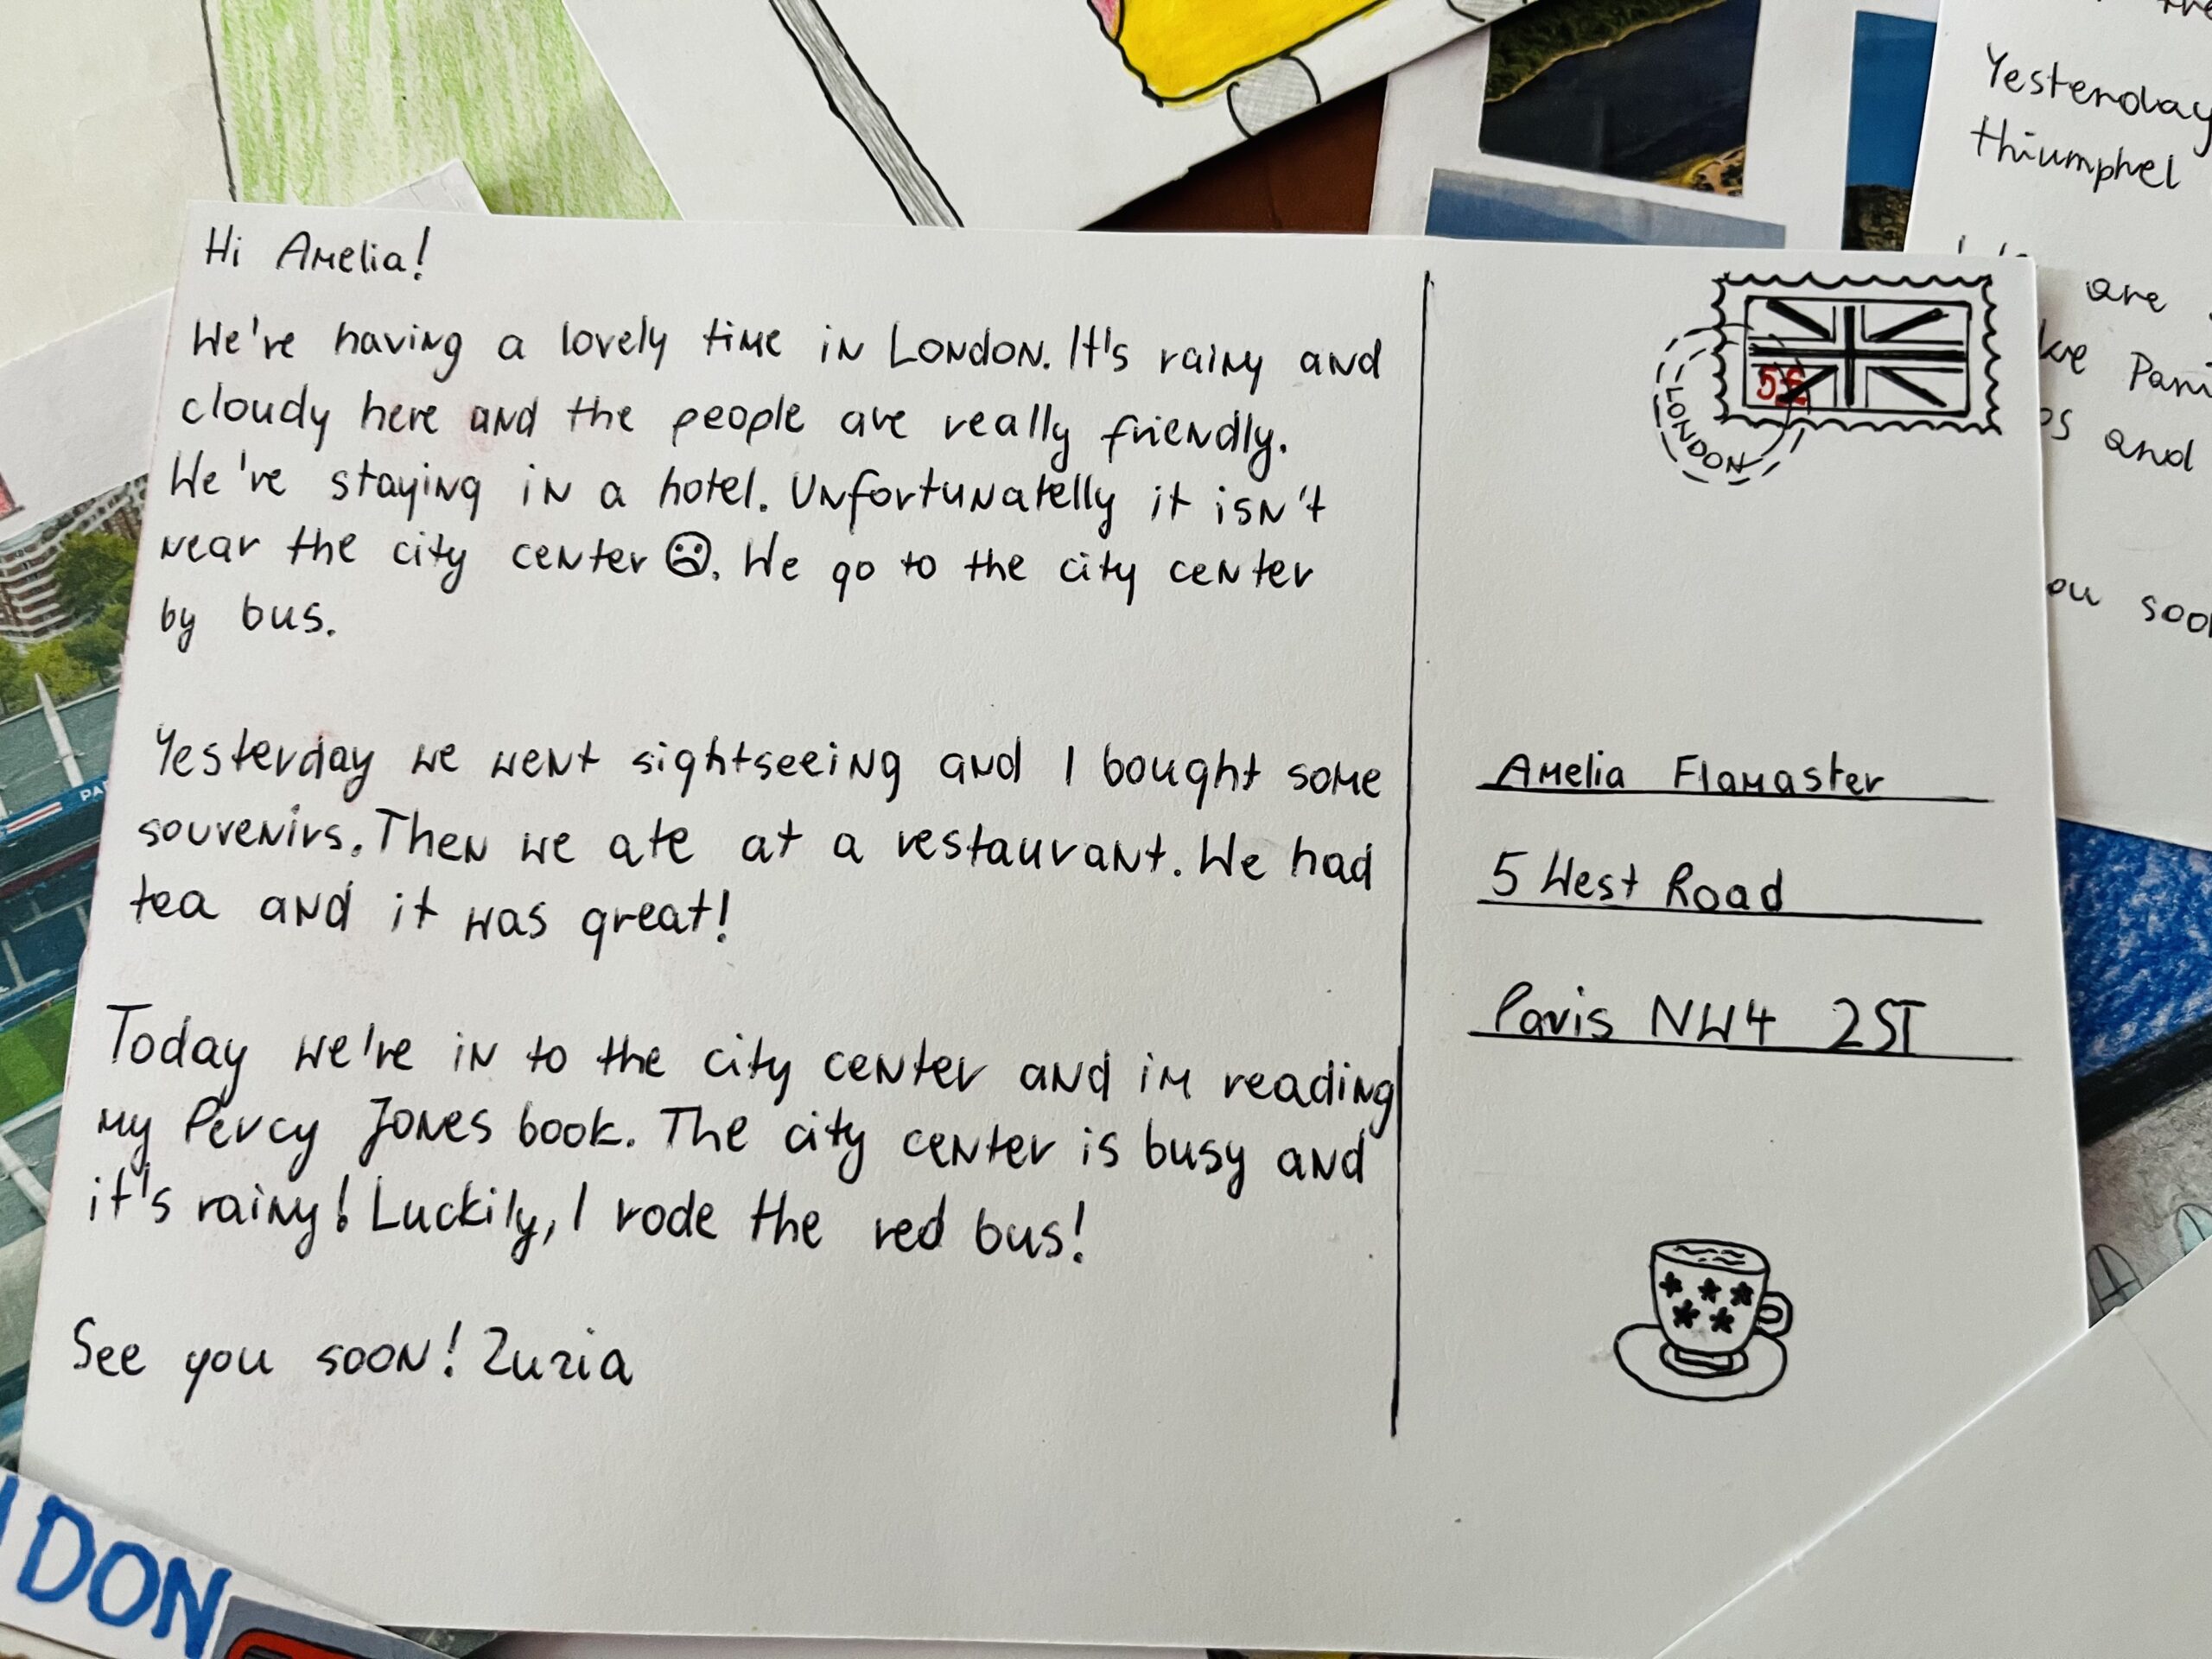 Hi Amelia!
We're having a lovely time in London. It's rainy and
cloudy here and the people are really friendly.
We're staying in a hotel. Unfortunatelly it isn't
near the city center ☹. We go to the city center
by bus.
Yesterday we went sightseeing and I bought some
souvenirs. Then we ate at a restaurant. We had
tea and it was great!
Today we're in to the city center and im reading
my Percy Jones book. The city center is busy and
it's rainy! Luckily, I rode the red bus!
See you soon! Zuzia
5£
LONDON
Amelia Flamaster
5 West Road
Paris NW4 2ST
Yesterday
thiumphel
are
and
DON